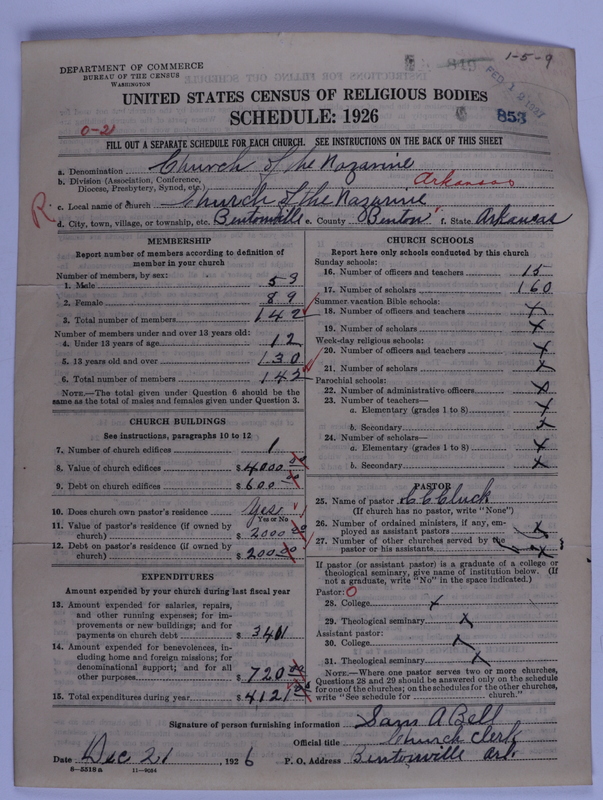 1-5-9
DEPARTMENT OF COMMERCE
BUREAU OF THE CENSUS
WASHINGTON
FEB 12 1927
UNITED STATES CENSUS OF RELIGIOUS BODIES
SCHEDULE: 1926
853
0-21
FILL OUT A SEPARATE SCHEDULE FOR EACH CHURCH. SEE INSTRUCTIONS ON THE BACK OF THIS SHEET
a. Denomination Church of the Nazarine
b. Division (Association, Conference, Diocese, Presbytery, Synod, etc.) Arkansas
c. Local name of church Church of the Nazarine
R.
d. City, town, village, or township, etc. Bentonville e. County Benton f. State Arkansas
MEMBERSHIP
Report number of members according to definition of
member in your church
Number of members, by sex:
1. Male 53
2. Female 89
3. Total number of members 142
Number of members under and over 13 years old:
4. Under 13 years of age 12
5. 13 years old and over 130
6. Total number of members 142
NOTE.—The total given under Question 6 should be the
same as the total of males and females given under Question 3.
CHURCH BUILDINGS
See instructions, paragraphs 10 to 12
7. Number of church edifices 1
8. Value of church edifices $ 4000 00
9. Debt on church edifices $ 600 00
10. Does church own pastor's residence Yes
Yes or No
11. Value of pastor's residence (if owned by
church) $ 2000 00
12. Debt on pastor's residence (if owned by
church) $ 200 00
EXPENDITURES
Amount expended by church during last fiscal year
13. Amount expended for salaries, repairs,
and other running expenses; for im-
provements or new buildings; and for
payments on church debt $ 3401
14. Amount expended for benevolences, in-
cluding home and foreign missions; for
denominational support; and for all
other purposes $ 720 00
15. Total expenditures during year $ 4121 00
CHURCH SCHOOLS
Report here only schools conducted by this church
Sunday schools:
16. Number of officers and teachers 15
17. Number of scholars 160
Summer vacation Bible schools:
18. Number of officers and teachers x
19. Number of scholars x
Week-day religious schools:
20. Number of officers and teachers x
21. Number of scholars x
Parochial schools:
22. Number of administrative officers x
23. Number of teachers—
a. Elementary (grades 1 to 8) x
b. Secondary x
24. Number of scholars—
a. Elementary (grades 1 to 8) x
b. Secondary x
PASTOR
25. Name of pastor C C Cluck
(If church has no pastor, write "None")
26. Number of ordained ministers, if any, em-
ployed as assistant pastors x
27. Number of other churches served by the
pastor or his assistants x
If pastor (or assistant pastor) is a graduate of a college or
theological seminary, give name of institution below. (If
not a graduate, write "No" in the space indicated.)
Pastor: 0
28. College x
29. Theological seminary x
Assistant pastor:
30. College x
31. Theological seminary x
NOTE.—Where one pastor serves two or more churches,
Questions 28 and 29 should be answered only on the schedule
for one of the churches; on the schedules for the other churches,
write "See schedule for church."
Signature of person furnishing information Sam A Bell
Official title Church Clerk
Date Dec 21 1926 P. O. Address Bentonville Ark.
8-5518 a 11-9084